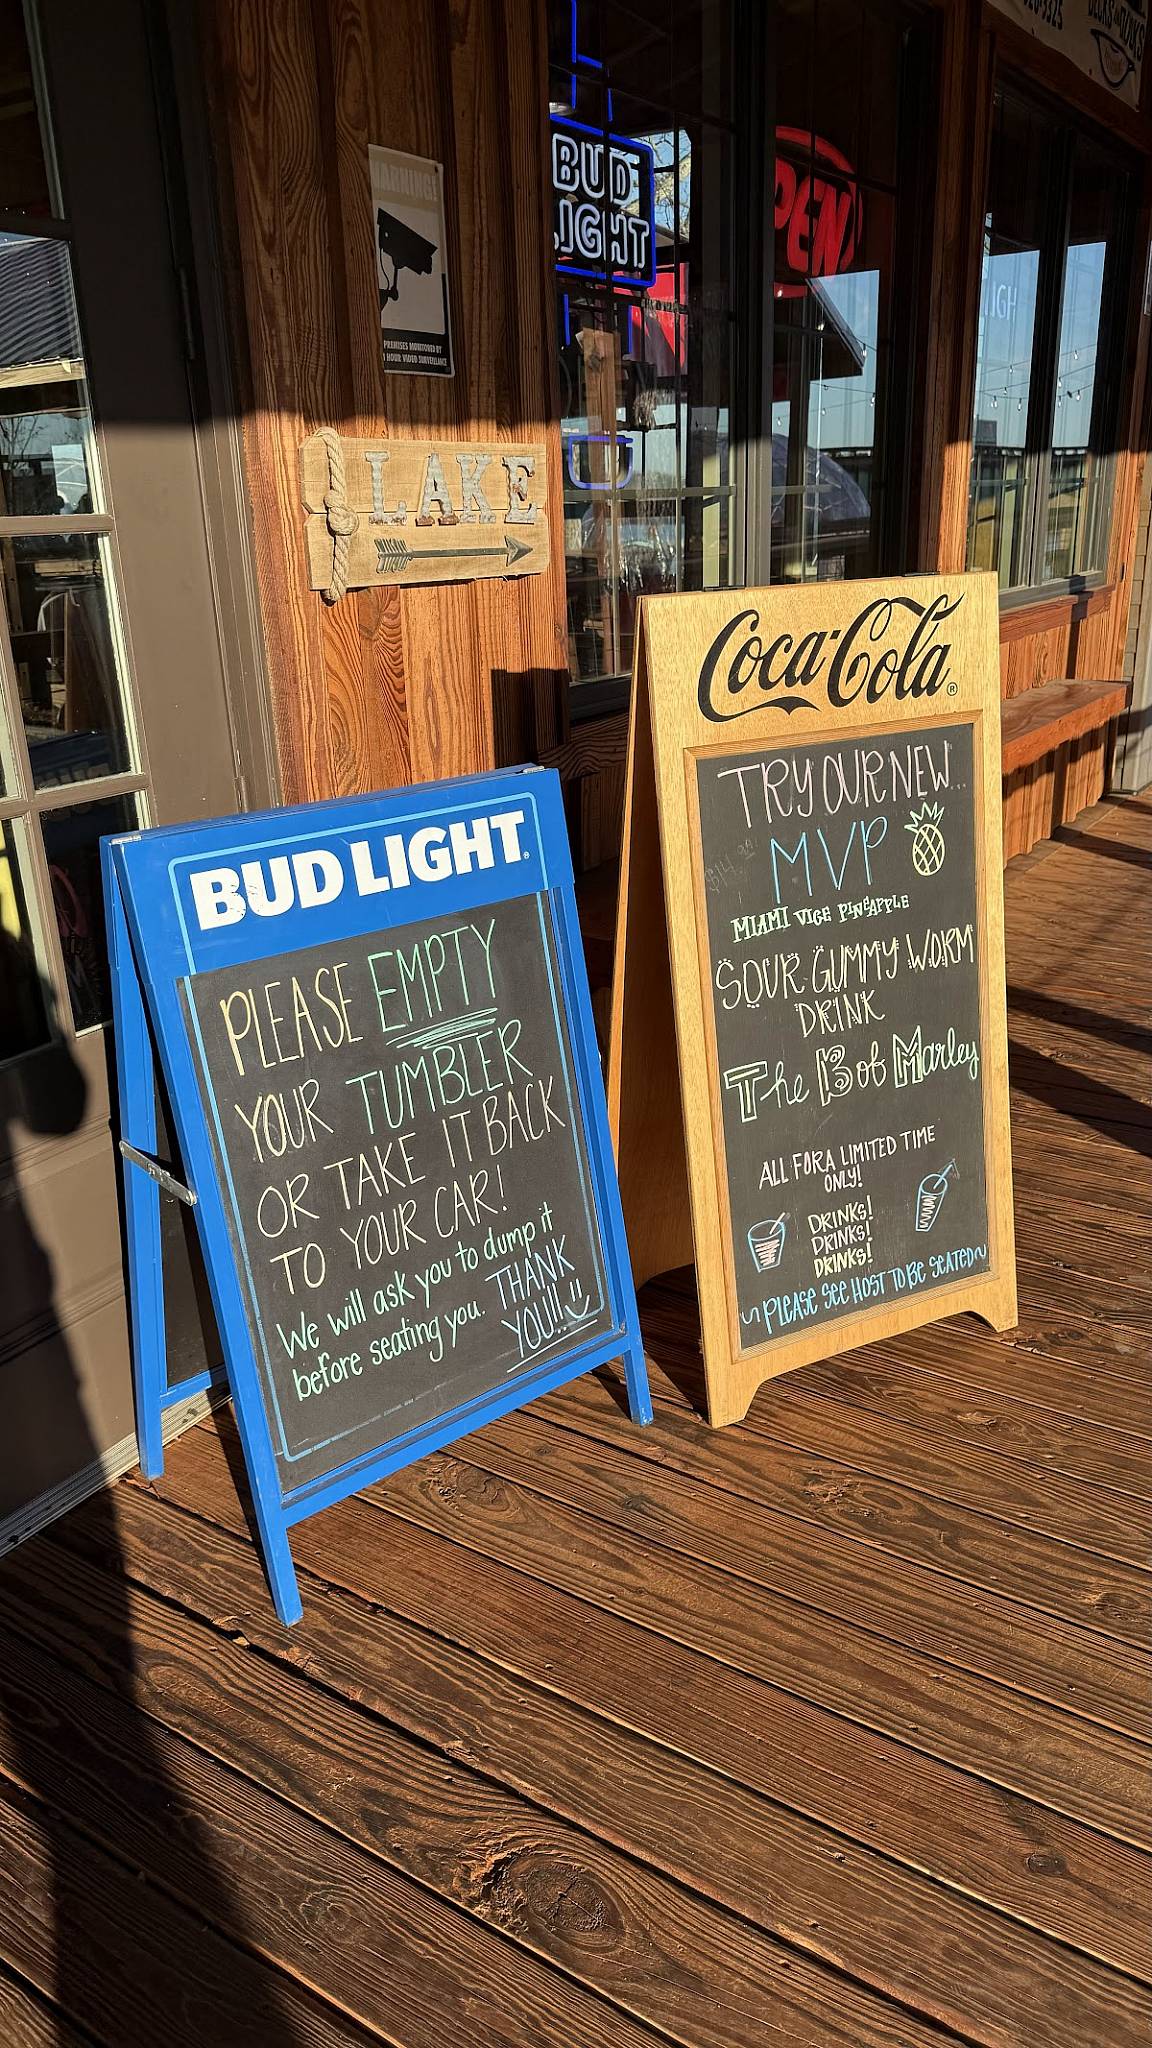 BUD
LIGHT
OPEN
WARNING!
PREMISES MONITORED BY
HOUR VIDEO SURVEILLANCE
LAKE
Coca-Cola®
TRY OUR NEW...
MVP
MIAMI VICE PINEAPPLE
SOUR GUMMY WORM
DRINK
The Bob Marley
ALL FOR A LIMITED TIME
ONLY!
DRINKS!
DRINKS!
DRINKS!
~PLEASE SEE HOST TO BE SEATED~
BUD LIGHT®
PLEASE EMPTY
YOUR TUMBLER
OR TAKE IT BACK
TO YOUR CAR!
We will ask you to dump it
before seating you. THANK
YOU!!!